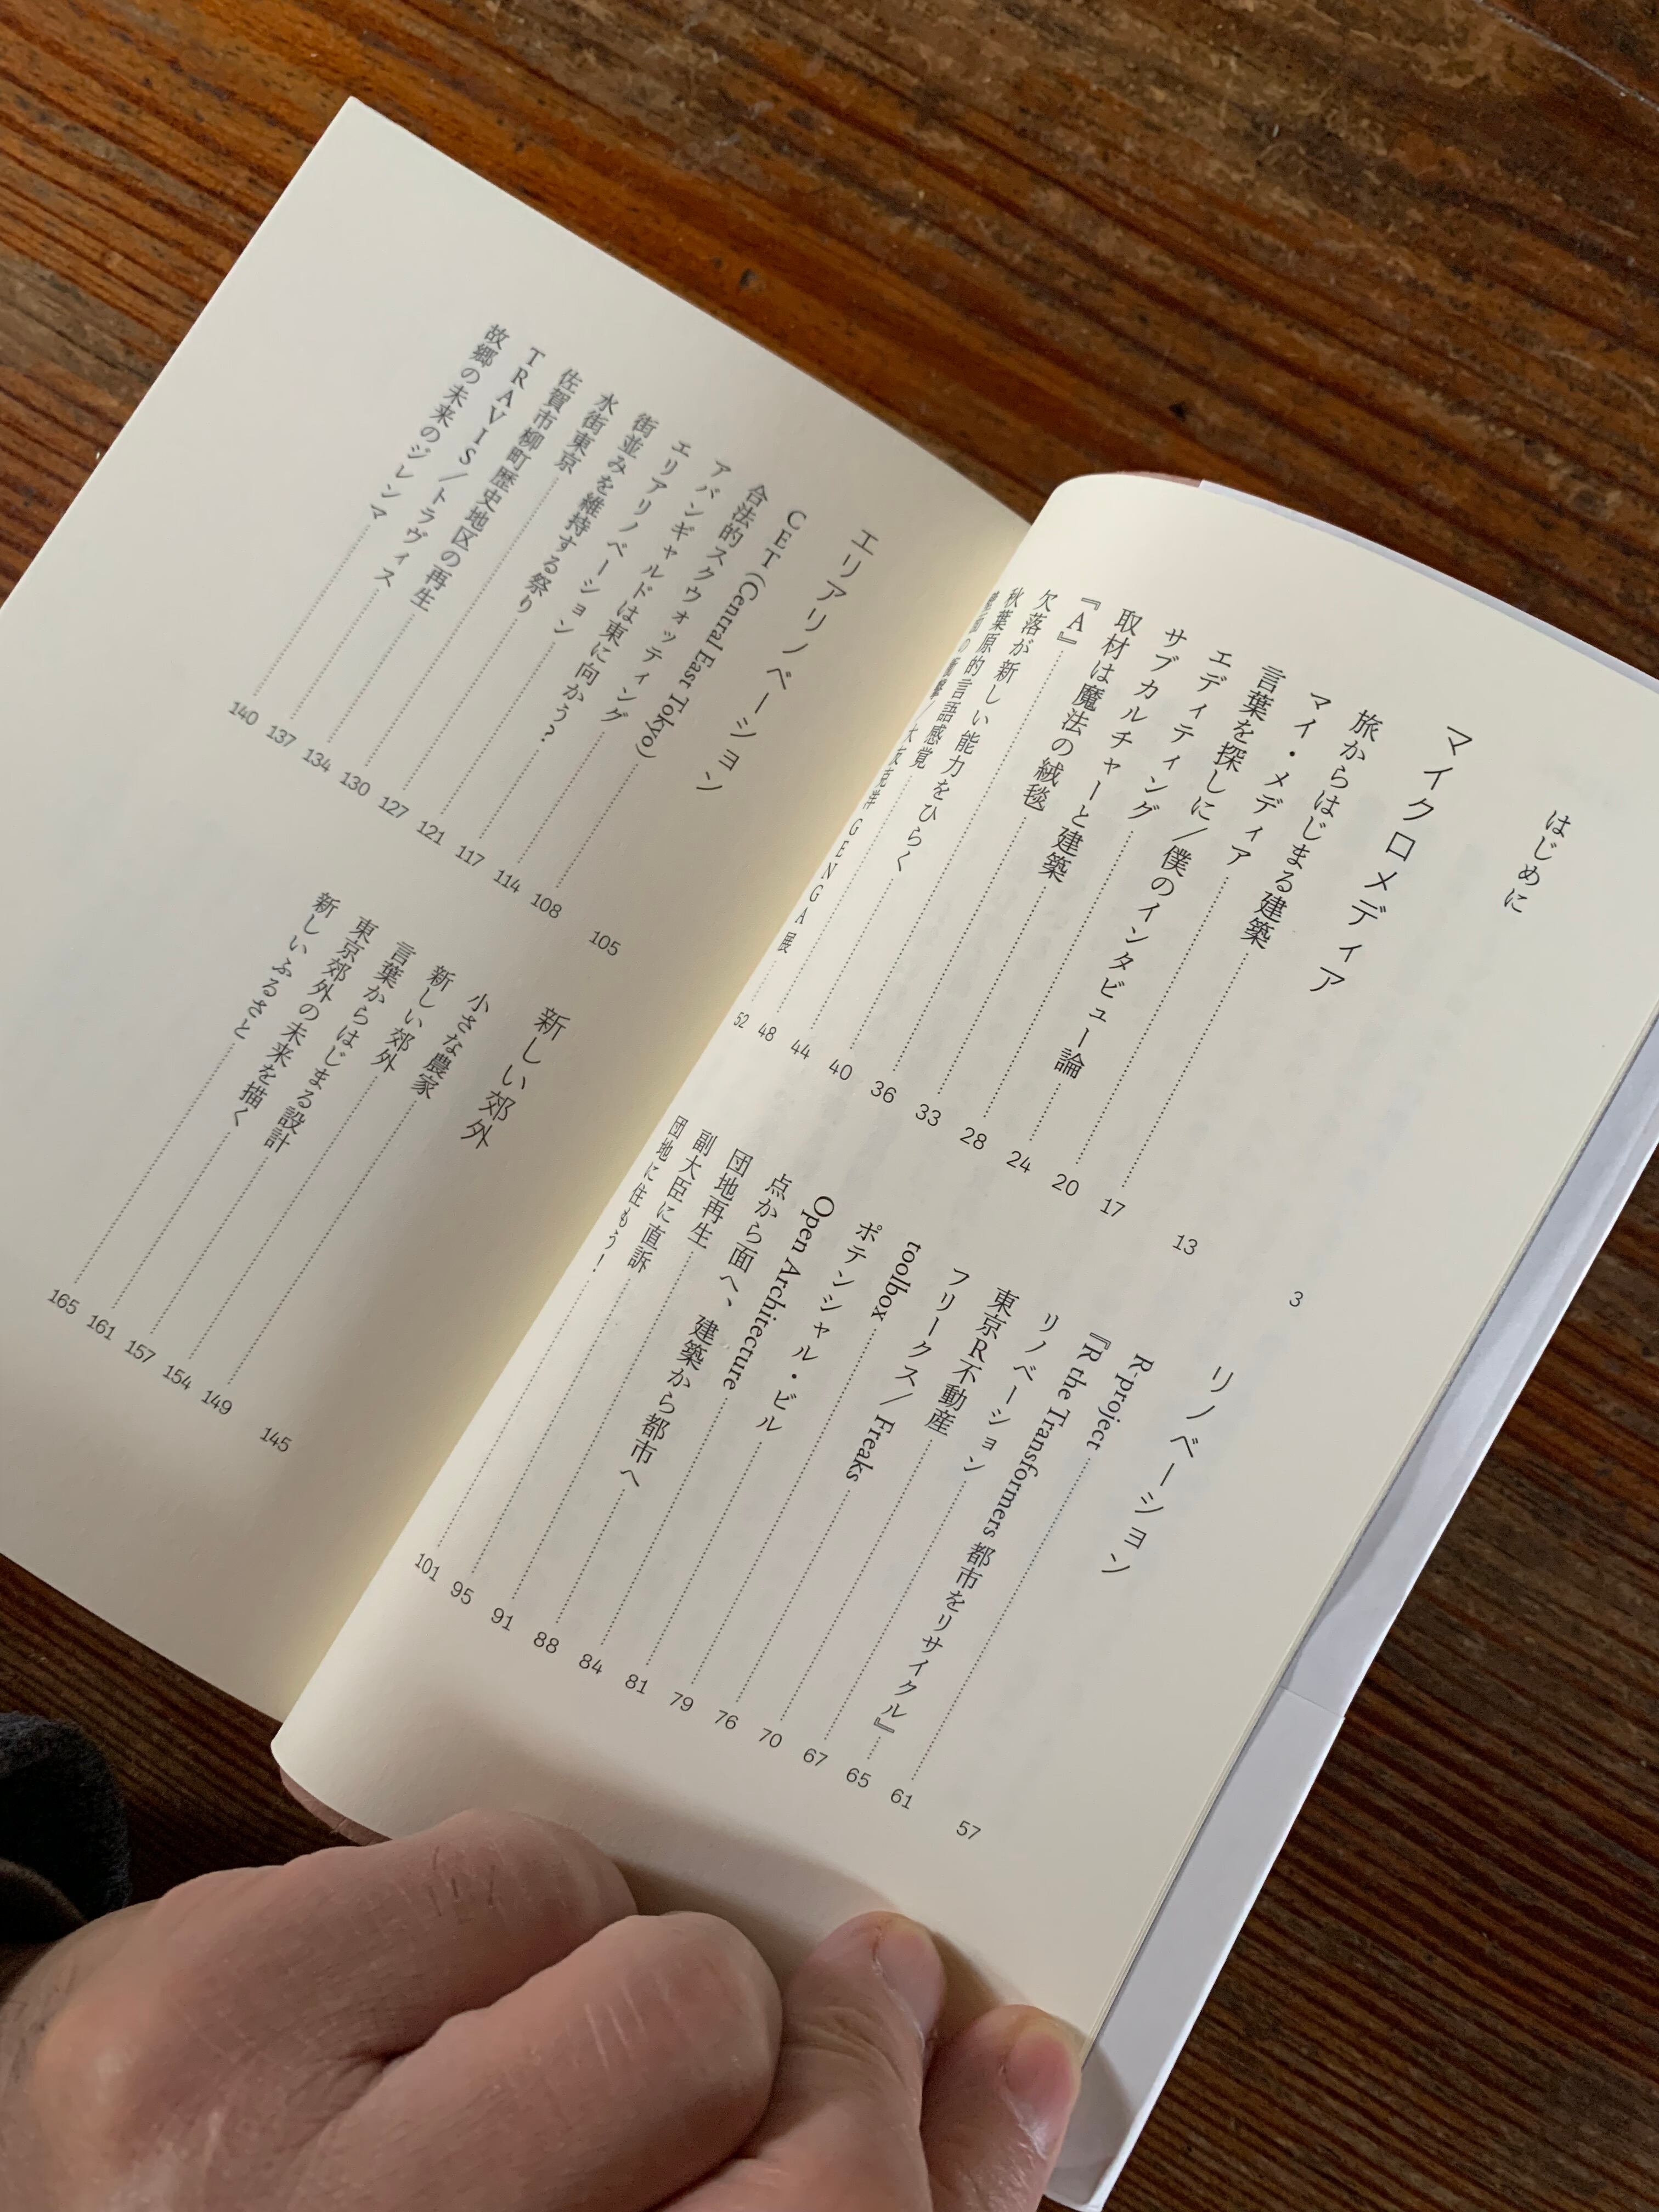 はじめに 3
マイクロメディア 13
旅からはじまる建築 17
マイ・メディア 20
言葉を探しに/僕のインタビュー論 24
エディティング 28
サブカルチャーと建築 33
取材は魔法の絨毯 36
『A』 40
欠落が新しい能力をひらく 44
秋葉原的言語感覚 48
GENGA展 52
リノベーション 57
R-project 61
『R the Transformers 都市をリサイクル』 65
リノベーション 67
東京R不動産 70
フリークス/Freaks 76
toolbox 79
ポテンシャル・ビル 81
Open Architecture 84
点から面へ、建築から都市へ 88
団地再生 91
副大臣に直訴 95
団地に住もう! 101
エリアリノベーション 105
CET(Central East Tokyo) 108
合法的スクウォッティング 114
アバンギャルドは東に向かう? 117
エリアリノベーション 121
街並みを維持する祭り 127
水街東京 130
佐賀市柳町歴史地区の再生 134
TRAVIS/トラヴィス 137
故郷の未来のジレンマ 140
新しい郊外 145
小さな農家 149
新しい郊外 154
言葉からはじまる設計 157
東京郊外の未来を描く 161
新しいふるさと 165